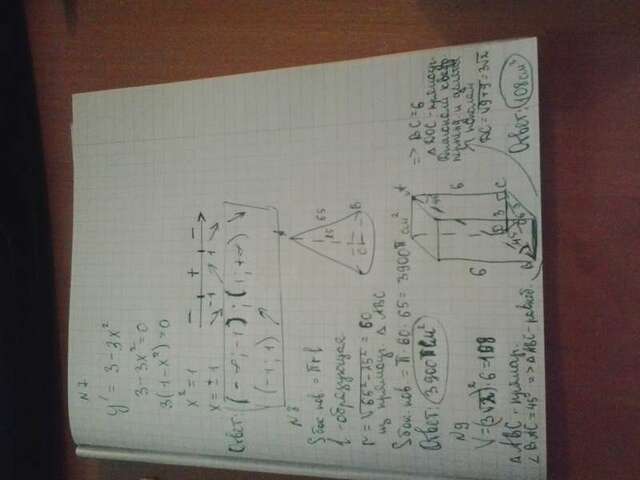 N 7
y' = 3 - 3x²
3 - 3x² = 0
3(1 - x²) = 0
x² = 1
x = ± 1
- + -
-1 1
Ответ: (-∞; -1); (1; +∞)
(-1; 1)
N 8
Sбок. пов = πrl
l - образующая
r = √65² - 25² = 60
из прямоуг. Δ ABC
Sбок. пов. = π · 60 · 65 = 3900π см²
Ответ: 3900π см²
A
65
25
C
B
N9
V = (3√2)² · 6 = 108
Δ ABC - прямоуг.
∠ BAC = 45° => Δ ABC - равноб.
A
45
6
6
O
3
C
45
3
B
=> BC = 6
Δ DOC - прямоуг.
Диагонали квадр.
перпенд. и делятся
пополам
DC = √9+9 = 3√2
Ответ: 108 см³